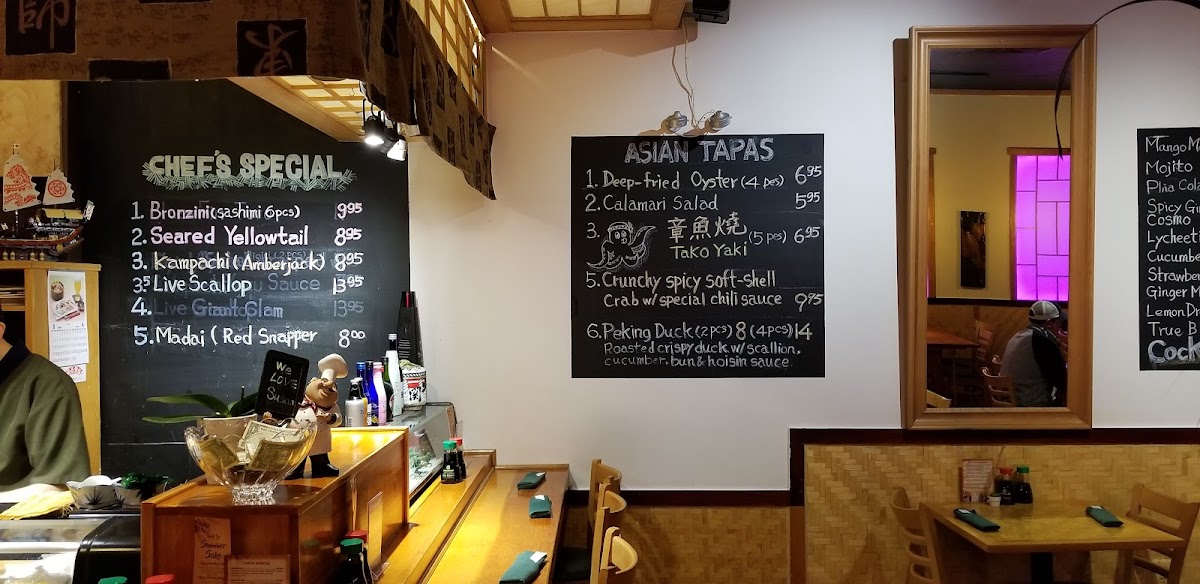 CHEF'S SPECIAL
1. Bronzini (sashimi 6pcs) 9.95
2. Seared Yellowtail 8.95
3. Kampachi (Amberjack) 8.95
3.5 Live Scallop 13.95
4. Live Giant Clam 13.95
5. Madai ( Red Snapper 8.00
WE
LOVE
ASIAN TAPAS
1. Deep-fried Oyster (4 pcs) 6.95
2. Calamari Salad 5.95
3. 章魚燒 (5 pcs) 6.95
Tako Yaki
5. Crunchy spicy soft-shell
Crab w/ special chili sauce 9.95
6. Peking Duck (2 pcs) 8 (4 pcs) 14
Roasted crispy duck w/ scallion,
cucumber, bun & hoisin sauce.
Mango M
Mojito
Piña Cola
Spicy Gi
Cosmo
Lycheeti
Cucumbe
Strawber
Ginger M
Lemon Dr
True B
Cock